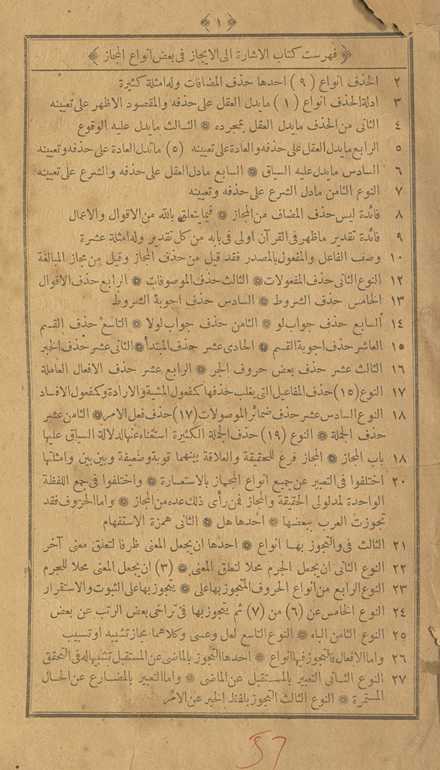 ﴿ ١ ﴾
﴿ فهرست كتاب الاشارة الى الايجاز فى بعض انواع المجاز ﴾
٢ الحذف انواع (٩) احدها حذف المضافات وله امثلة كثيرة
٣ ادلة الحذف انواع (١) مايدل العقل على حذفه والمقصود الاظهر على تعيينه
٤ الثانى من الحذف مايدل العقل بمجرده ❁ الثالث مايدل عليه الوقوع
٥ الرابع مايدل العقل على حذفه والعادة على تعيينه (٥) ماتدل العادة على حذفه وتعيينه
٦ السادس مايدل عليه السياق ❁ السابع مادل العقل على حذفه والشرع على تعيينه
٧ النوع الثامن مادل الشرع على حذفه وتعيينه
٨ فائدة ليس حذف المضاف من المجاز ❁ فيما يتعلق بالله من الاقوال والاعمال
٩ فائدة تقدير ماظهر فى القرآن اولى فى بابه من كل تقدير وله امثلة عشرة
١٠ وصف الفاعل والمفعول بالمصدر فقد قيل من حذف المجاز وقيل من مجاز المبالغة
١٢ النوع الثانى حذف المفعولات ❁ الثالث حذف الموصوفات ❁ الرابع حذف الاقوال
١٣ الخامس حذف الشروط ❁ السادس حذف اجوبة الشروط
١٤ السابع حذف جواب لو ❁ الثامن حذف جواب لولا ❁ التاسع حذف القسم
١٥ العاشر حذف اجوبة القسم ❁ الحادى عشر حذف المبتدأ ❁ الثانى عشر حذف الخبر
١٦ الثالث عشر حذف بعض حروف الجر ❁ الرابع عشر حذف الافعال العاملة
١٧ النوع (١٥) حذف المفاعيل التى يغلب حذفها كمفعول المشيئة والارادة وكمفعول الافساد
١٨ النوع السادس عشر حذف ضمائر الموصولات (١٧) حذف فعل الامر ❁ الثامن عشر
حذف الجملة ❁ النوع (١٩) حذف الجملة الكثيرة استغناء عنها لدلالة السياق عليها
١٨ باب المجاز ❁ المجاز فرع للحقيقة والعلاقة بينهما قوية وضعيفة وبين بين وامثلتها
٢٠ اختلفوا فى التعبير عن جميع انواع المجاز بالاستعارة ❁ واختلفوا فى جمع اللفظة
الواحدة لمدلولى الحقيقة والمجاز فمن رأى ذلك عده من المجاز ❁ واما الحروف فقد
تجوزت العرب ببعضها ❁ احدها هل ❁ الثانى همزة الاستفهام
٢١ الثالث فى والتجوز بهـا انواع ❁ احدها ان يجعل المعنى ظرفا لتعلق معنى آخر
٢٢ النوع الثانى ان يجعل الجرم محلا لتعلق المعنى ❁ (٣) ان يجعل المعنى محلا للجرم
٢٣ النوع الرابع من انواع الحروف المتجوز بها على ❁ يتجوز بها على الثبوت والاستقرار
٢٤ النوع الخامس عن (٦) من (٧) ثم يتجوز بها فى تراخى بعض الرتب عن بعض
٢٥ النوع الثامن الباء ❁ النوع التاسع لعل وعسى وكلاهما مجاز تشبيه او تسبيب
٢٦ واما الافعال فالتجوز فيها انواع ❁ احدها التجوز بالماضى عن المستقبل تشبيها له فى التحقق
٢٧ النوع الثانى التعبير بالمستقبل عن الماضى ❁ واما التعبير بالمضارع عن الحال
المستمرة ❁ النوع الثالث التجوز بلفظ الخبر عن الامر
57